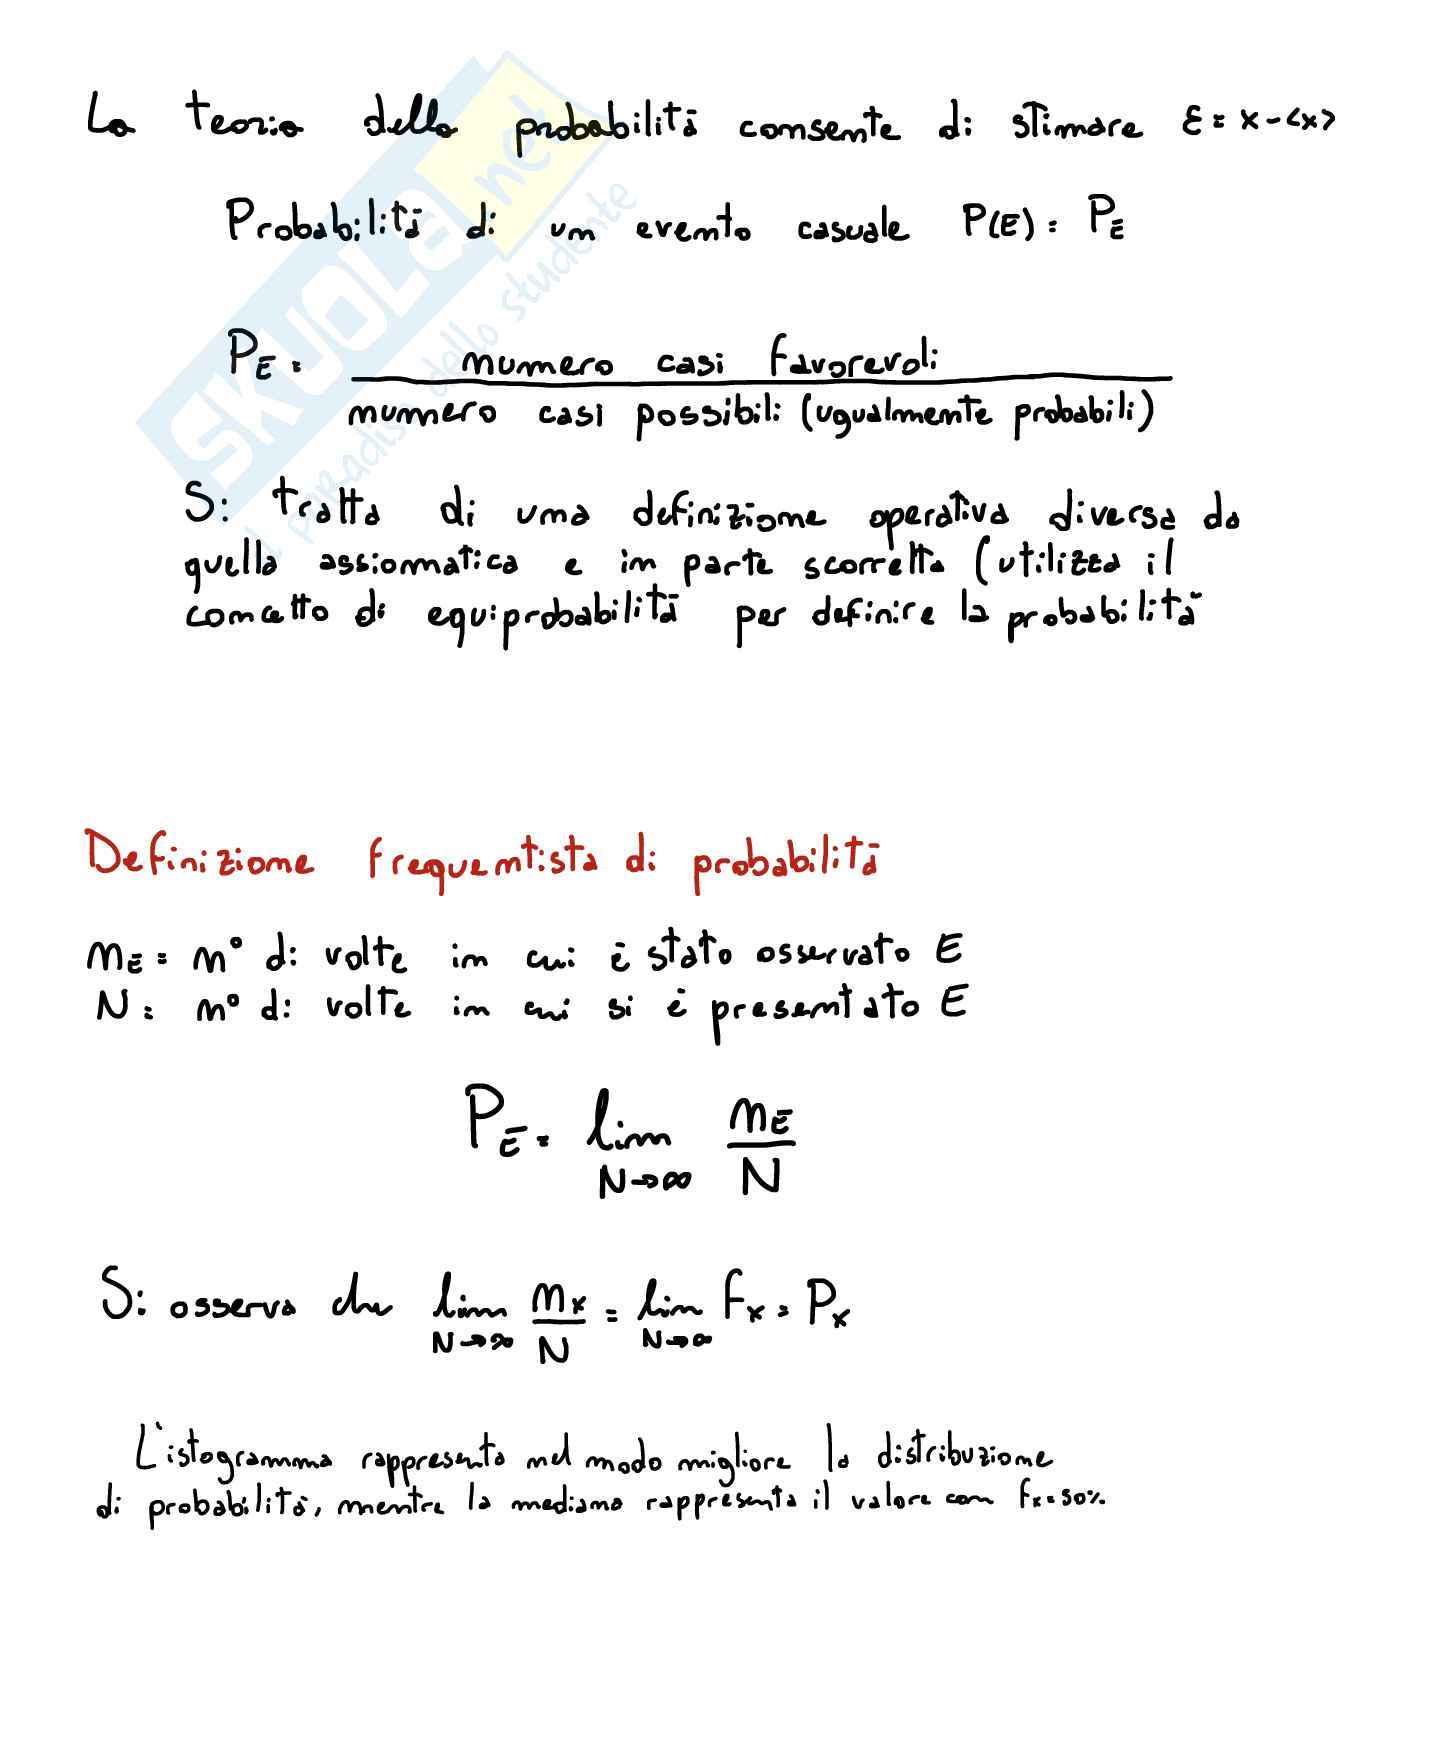 La teoria della probabilità consente di stimare ε = x - <x>
Probabilità di un evento casuale P(E) = P_E
P_E = numero casi favorevoli
numero casi possibili (ugualmente probabili)
Si tratta di una definizione operativa diversa da
quella assiomatica e in parte scorretta (utilizza il
concetto di equiprobabilità per definire la probabilità
Definizione frequentista di probabilità
n_E = n° di volte in cui è stato osservato E
N = n° di volte in cui si è presentato E
P_E = lim n_E
N→∞ N
Si osserva che lim n_x = lim f_x = P_x
N→∞ N N→∞
L'istogramma rappresenta nel modo migliore la distribuzione
di probabilità, mentre la mediana rappresenta il valore con f_x = 50%
SKUOLA.net
il paradiso dello studente